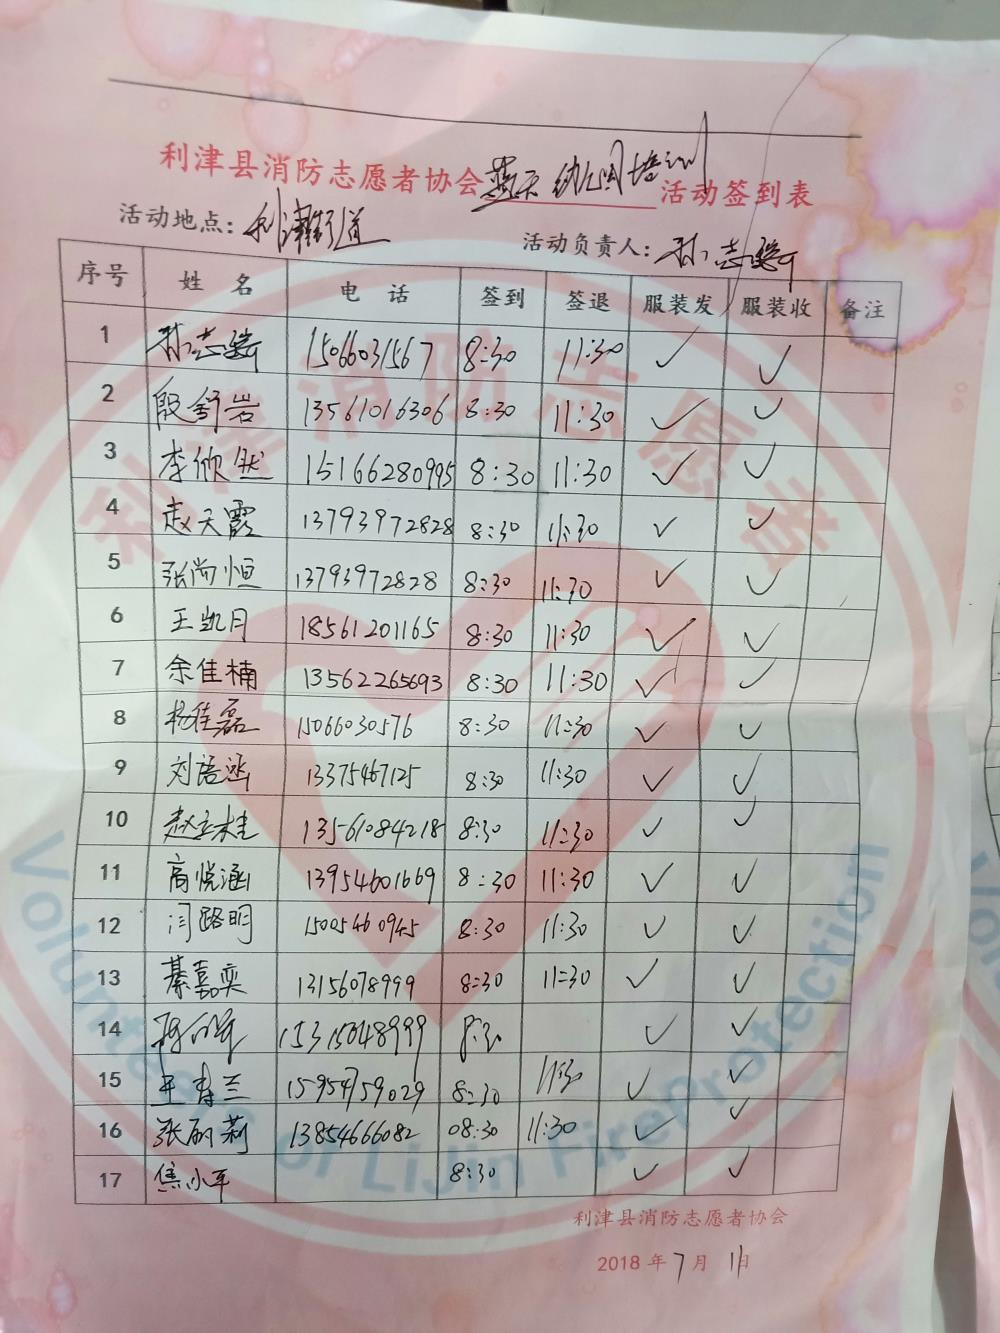 利津县消防志愿者协会蓝天幼儿园培训活动签到表
活动地点：利津街道 活动负责人：孙志
序号 姓名 电话 签到 签退 服装发 服装收 备注
1 孙志 15066031567 8:30 11:30 ✓ ✓
2 殷舒岩 13561016306 8:30 11:30 ✓ ✓
3 李欣然 15166280995 8:30 11:30 ✓ ✓
4 赵天霞 13793972828 8:30 11:30 ✓ ✓
5 张尚恒 13793972828 8:30 11:30 ✓ ✓
6 王凯月 18561201165 8:30 11:30 ✓ ✓
7 余佳楠 13562265693 8:30 11:30 ✓ ✓
8 杨佳磊 15066030576 8:30 11:30 ✓ ✓
9 刘语 13375467125 8:30 11:30 ✓ ✓
10 赵玉桂 13561084218 8:30 11:30 ✓ ✓
11 高悦涵 13954601669 8:30 11:30 ✓ ✓
12 闫路明 15005460945 8:30 11:30 ✓ ✓
13 綦嘉奕 13156078999 8:30 11:30 ✓ ✓
14 15315048999 8:30 ✓ ✓
15 王春兰 15954759029 8:30 11:30 ✓ ✓
16 张丽莉 13854666082 08:30 11:30 ✓ ✓
17 焦小平 8:30 ✓ ✓
利津县消防志愿者协会
2018年7月11日
利津消防志愿者
Volunteers of LiJin FireProtection